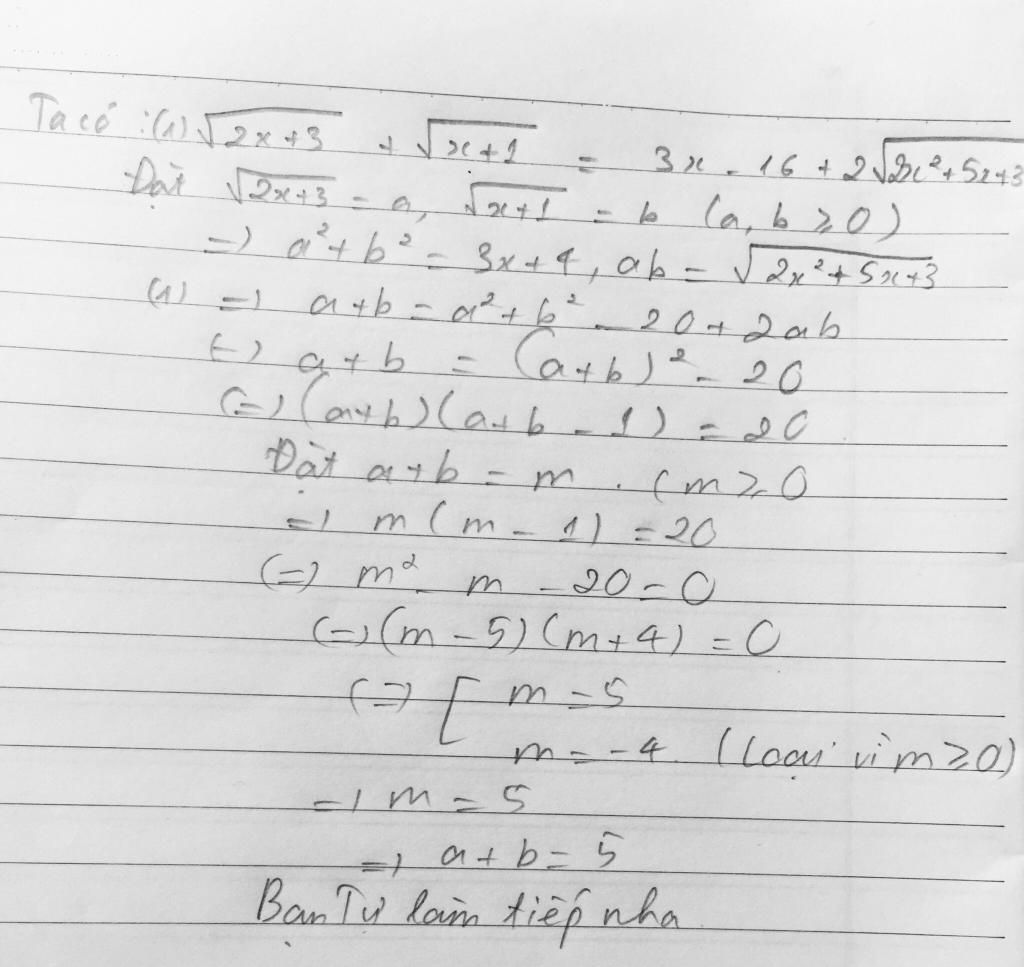 Ta có : (1) √(2x+3) + √(x+1) = 3x - 16 + 2√(2x²+5x+3
Đặt √(2x+3) = a, √(x+1) = b (a, b ≥ 0)
=) a² + b² = 3x + 4, ab = √(2x²+5x+3)
(1) =) a + b = a² + b² - 20 + 2ab
(=) a + b = (a + b)² - 20
(=) (a+b)(a+b - 1) = 20
Đặt a + b = m . (m ≥ 0
=) m (m - 1) = 20
(=) m² - m - 20 = 0
(=) (m - 5) (m + 4) = 0
(=) [ m = 5
m = -4 (loại vì m ≥ 0)
=) m = 5
=) a + b = 5
Bạn Tự làm tiếp nha